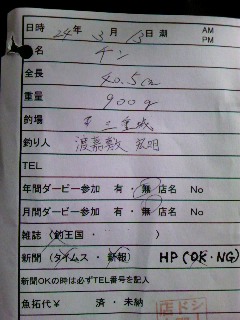 日時 24年 3月 13日 潮 AM PM
名 チン
全長 40.5cm
重量 900g
釣場
釣り人 渡嘉敷
TEL
年間ダービー参加 有・無 店名 No
月間ダービー参加 有・無 店名 No
雑誌 (釣王国・ )
新聞 (タイムス・新報) HP(OK・NG)
新聞OKの時は必ずTEL番号を記入
魚拓代¥ 済・未納